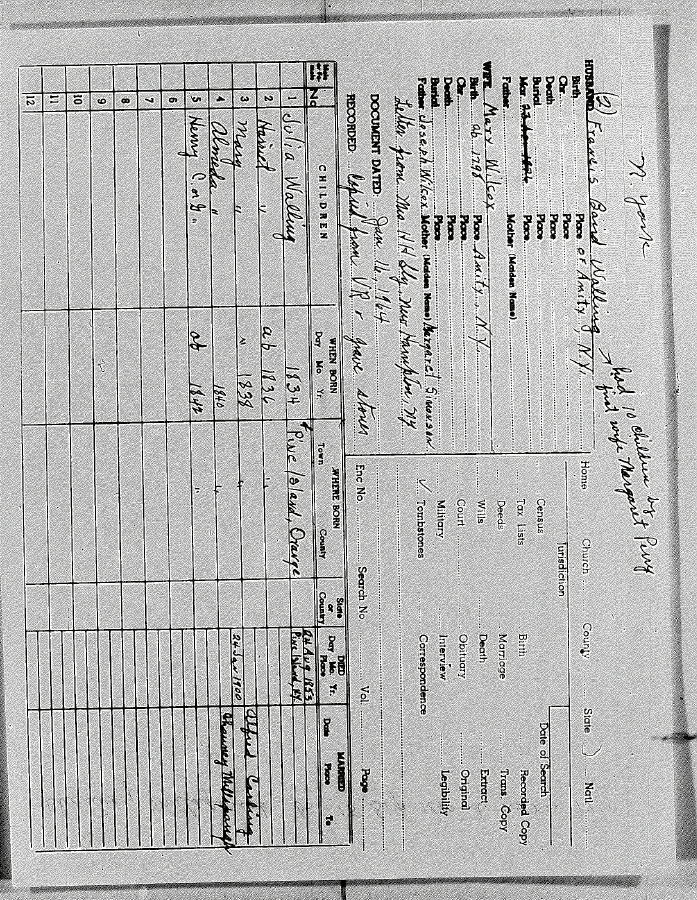 N. York
had 10 children by
first wife Margaret Perry
HUSBAND (2) Francis Baird Walling
Birth Place of Amity N.Y.
Chr. Place
Death Place
Burial Place
Mar Place
Father Mother (Maiden Name)
WIFE Mary Wilcox
Birth ab 1798 Place Amity, N.Y.
Chr. Place
Death Place
Burial Place
Father Joseph Wilcox Mother (Maiden Name) Margaret Simonson
Letter from Mrs. H H Sly, New Hampton, NY
DOCUMENT DATED Jan 16, 1964
RECORDED Copied from VR & grave stones
Home Church County State Natl
Jurisdiction
Date of Search
Census Birth Recorded Copy
Tax Lists Marriage Trans Copy
Deeds Death Extract
Wills Obituary Original
Court Interview Legibility
Military Correspondence
✓ Tombstones
Enc No. Search No Vol Page
Male or Fe male No CHILDREN WHEN BORN Day Mo Yr. WHERE BORN Town County State or Country DIED Day Mo Yr. Place MARRIED Date Place To
1 Julia Walling 1834 Pine Island, Orange 24 Aug 1853 Pine Island, NY
2 Harriet " ab 1836 " Alfred
3 Mary " " 1838 " 24 Jan 1900 Chauncy Millspaugh
4 Almeda " 1840 "
5 Henry C. or G. ab 1842 "
6
7
8
9
10
11
12